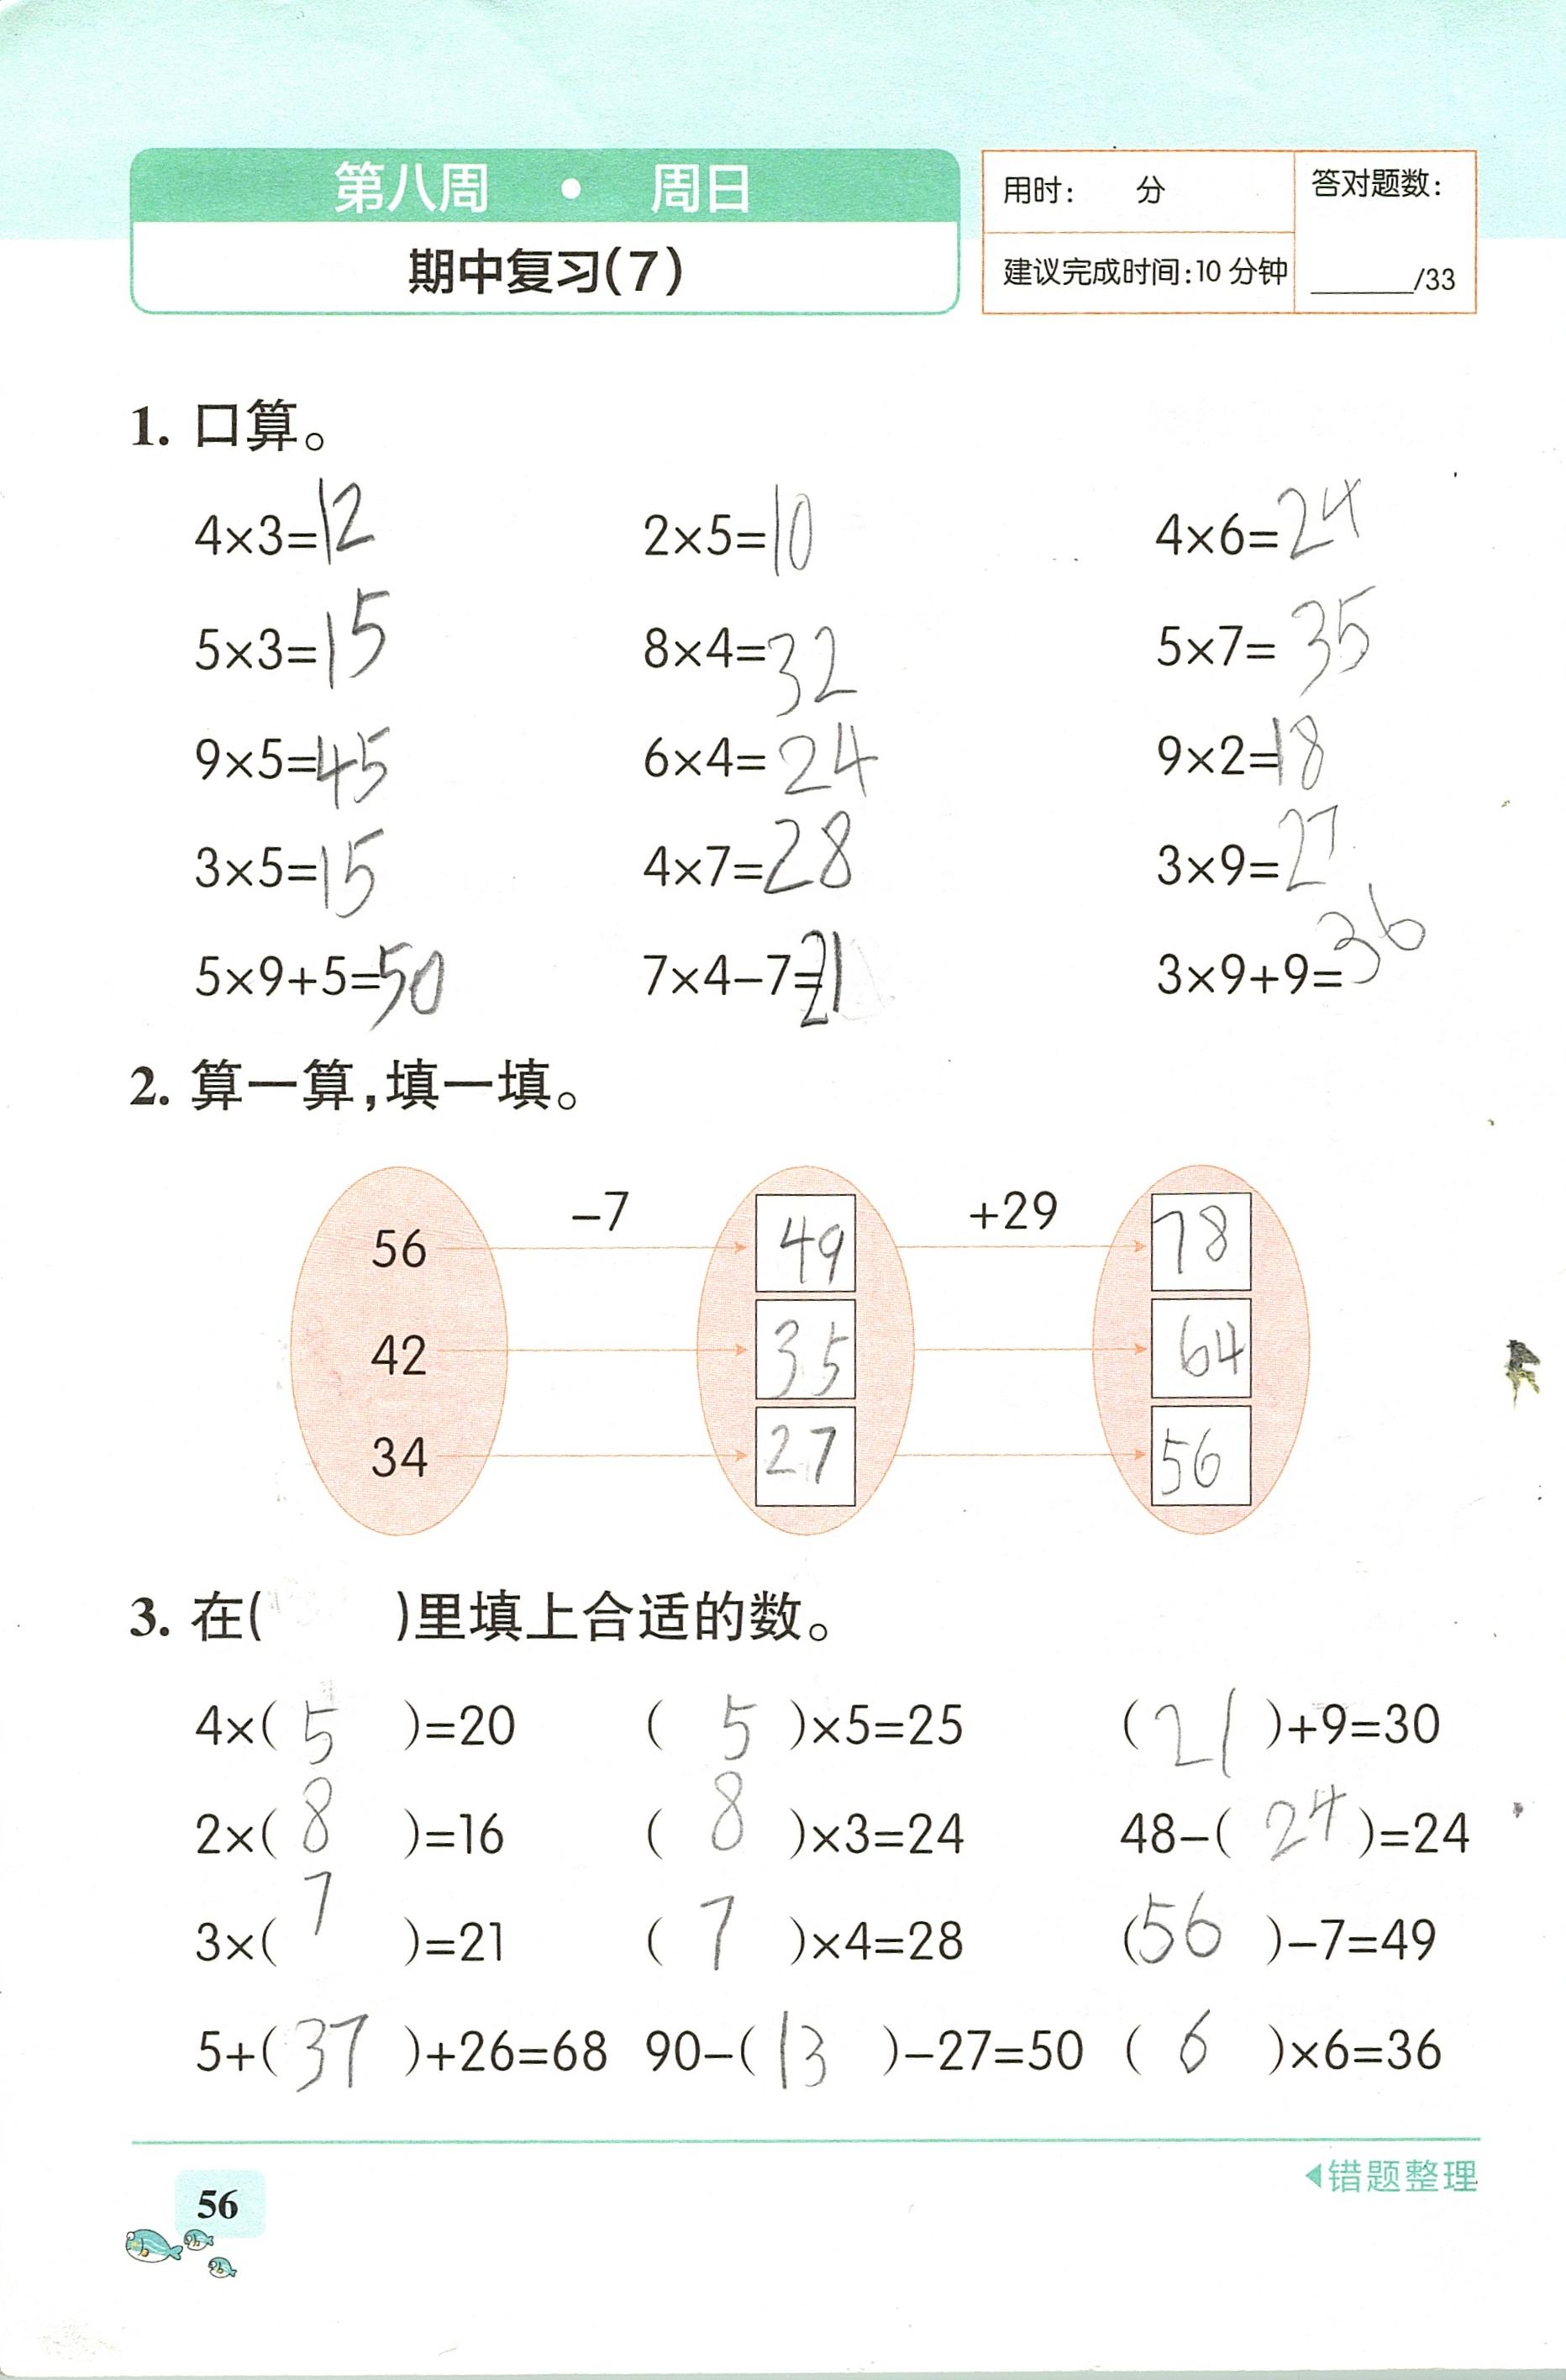 第八周 • 周日
期中复习(7)
用时: 分
建议完成时间:10分钟
答对题数:
______/33
1. 口算。
4×3=12 2×5=10 4×6=24
5×3=15 8×4=32 5×7=35
9×5=45 6×4=24 9×2=18
3×5=15 4×7=28 3×9=27
5×9+5=50 7×4-7=21 3×9+9=36
2. 算一算,填一填。
-7 +29
56 49 78
42 35 64
34 27 56
3. 在( )里填上合适的数。
4×( 5 )=20 ( 5 )×5=25 ( 21 )+9=30
2×( 8 )=16 ( 8 )×3=24 48-( 24 )=24
3×( 7 )=21 ( 7 )×4=28 ( 56 )-7=49
5+( 37 )+26=68 90-( 13 )-27=50 ( 6 )×6=36
◀错题整理
56